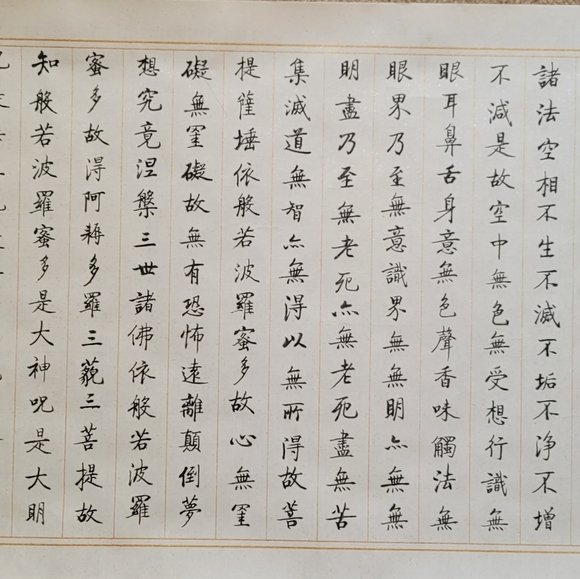 諸法空相不生不滅不垢不净不增
不減是故空中無色無受想行識無
眼耳鼻舌身意無色聲香味觸法無
眼界乃至無意識界無無明亦無無
明盡乃至無老死亦無老死盡無苦
集滅道無智亦無得以無所得故菩
提薩埵依般若波羅蜜多故心無罣
礙無罣礙故無有恐怖遠離顛倒夢
想究竟涅槃三世諸佛依般若波羅
蜜多故得阿耨多羅三藐三菩提故
知般若波羅蜜多是大神呪是大明